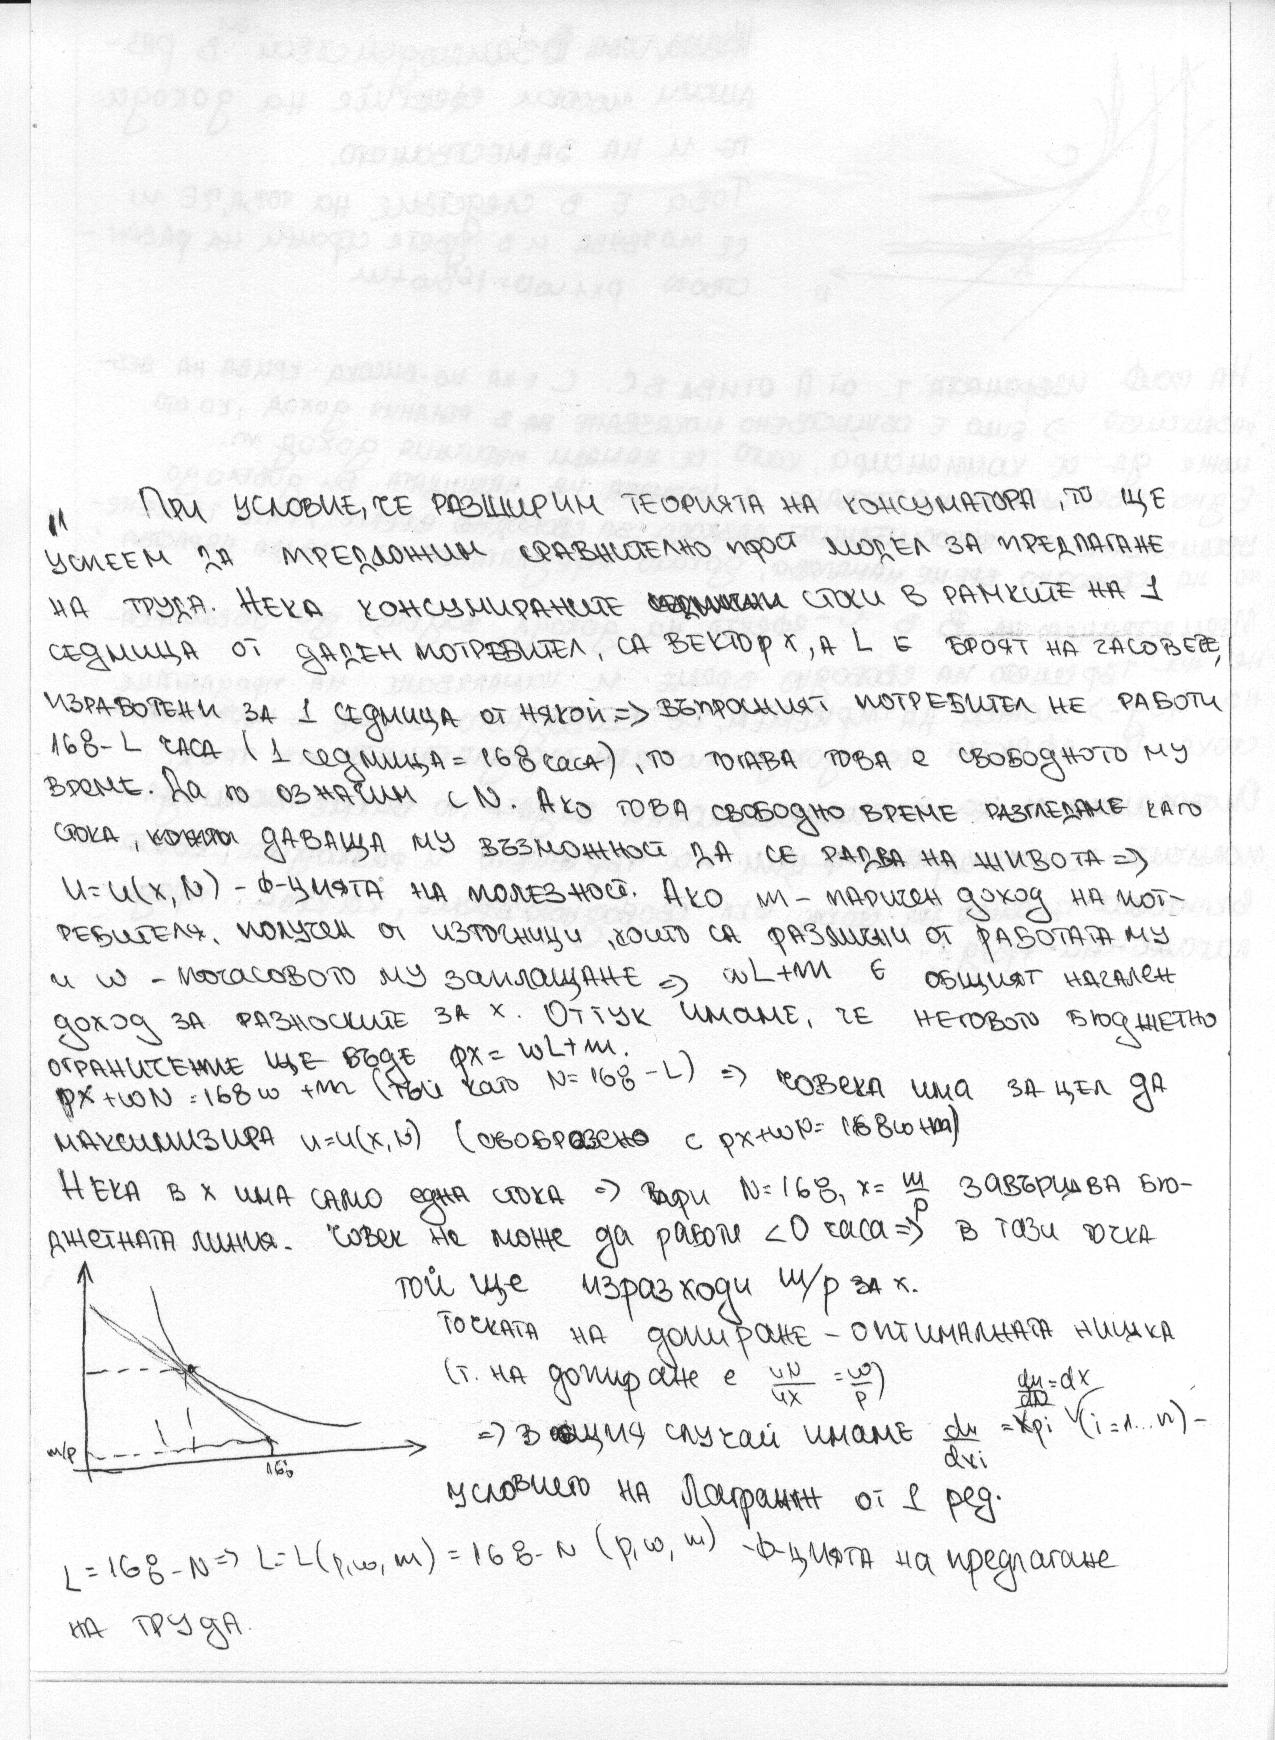 " При условие, че разширим теорията на консуматора, то ще
успеем да предложим сравнително прост модел за предлагане
на труда. Нека консумираните стоки в рамките на 1
седмица от даден потребител, са вектор x, а L е броят на часовете,
изработени за 1 седмица от някой => въпросният потребител не работи
168-L часа (1 седмица = 168 часа), то тогава това е свободното му
време. Да го означим с N. Ако това свободно време разгледаме като
стока, даваща му възможност да се радва на живота =>
u=u(x,N) - ф-цията на полезност. Ако m - паричен доход на пот-
ребителя, получен от източници, които са различни от работата му
и w - почасовото му заплащане => wL+m е общият начален
доход за разноските за x. Оттук имаме, че неговото бюджетно
ограничение ще бъде px = wL+m.
px+wN = 168w+m (тъй като N=168-L) => човека има за цел да
максимизира u=u(x,N) (съобразено с px+wN = 168w+m)
Нека в x има само една стока => при N=168, x= m/p завършва бю-
джетната линия. Човек не може да работи <0 часа => в тази точка
той ще изразходи m/p за x.
точката на допиране - оптималната
(т. на допиране е uN/ux = w/p)
du/dN = dx
=> В общия случай имаме du/dxi = xpi (i=1...n) -
условието на Лагранж от 1 ред.
m/p
168
L=168-N => L=L(p,w,m) = 168-N (p,w,m) - ф-цията на предлагане
на труда.